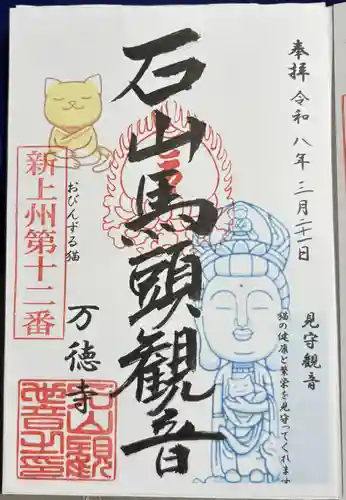 奉拝
令和八年三月二十一日
見守観音
猫の健康と繁栄を見守ってくれます
石山馬頭観音
おびんずる猫
万徳寺
新上州第十二番